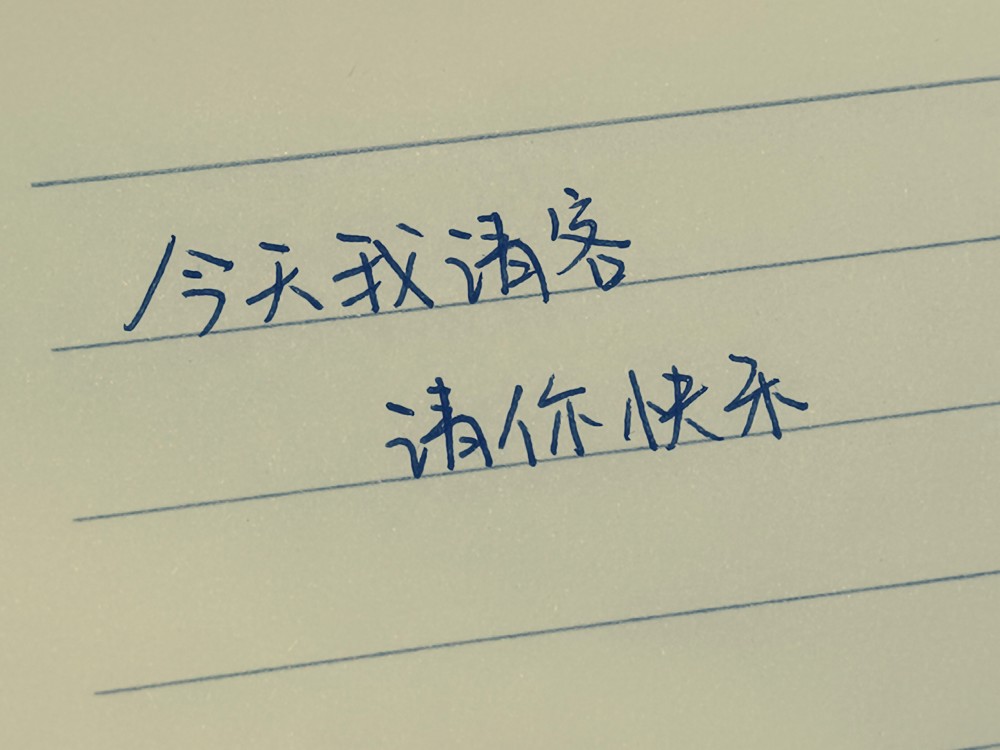 今天我请客
请你快乐